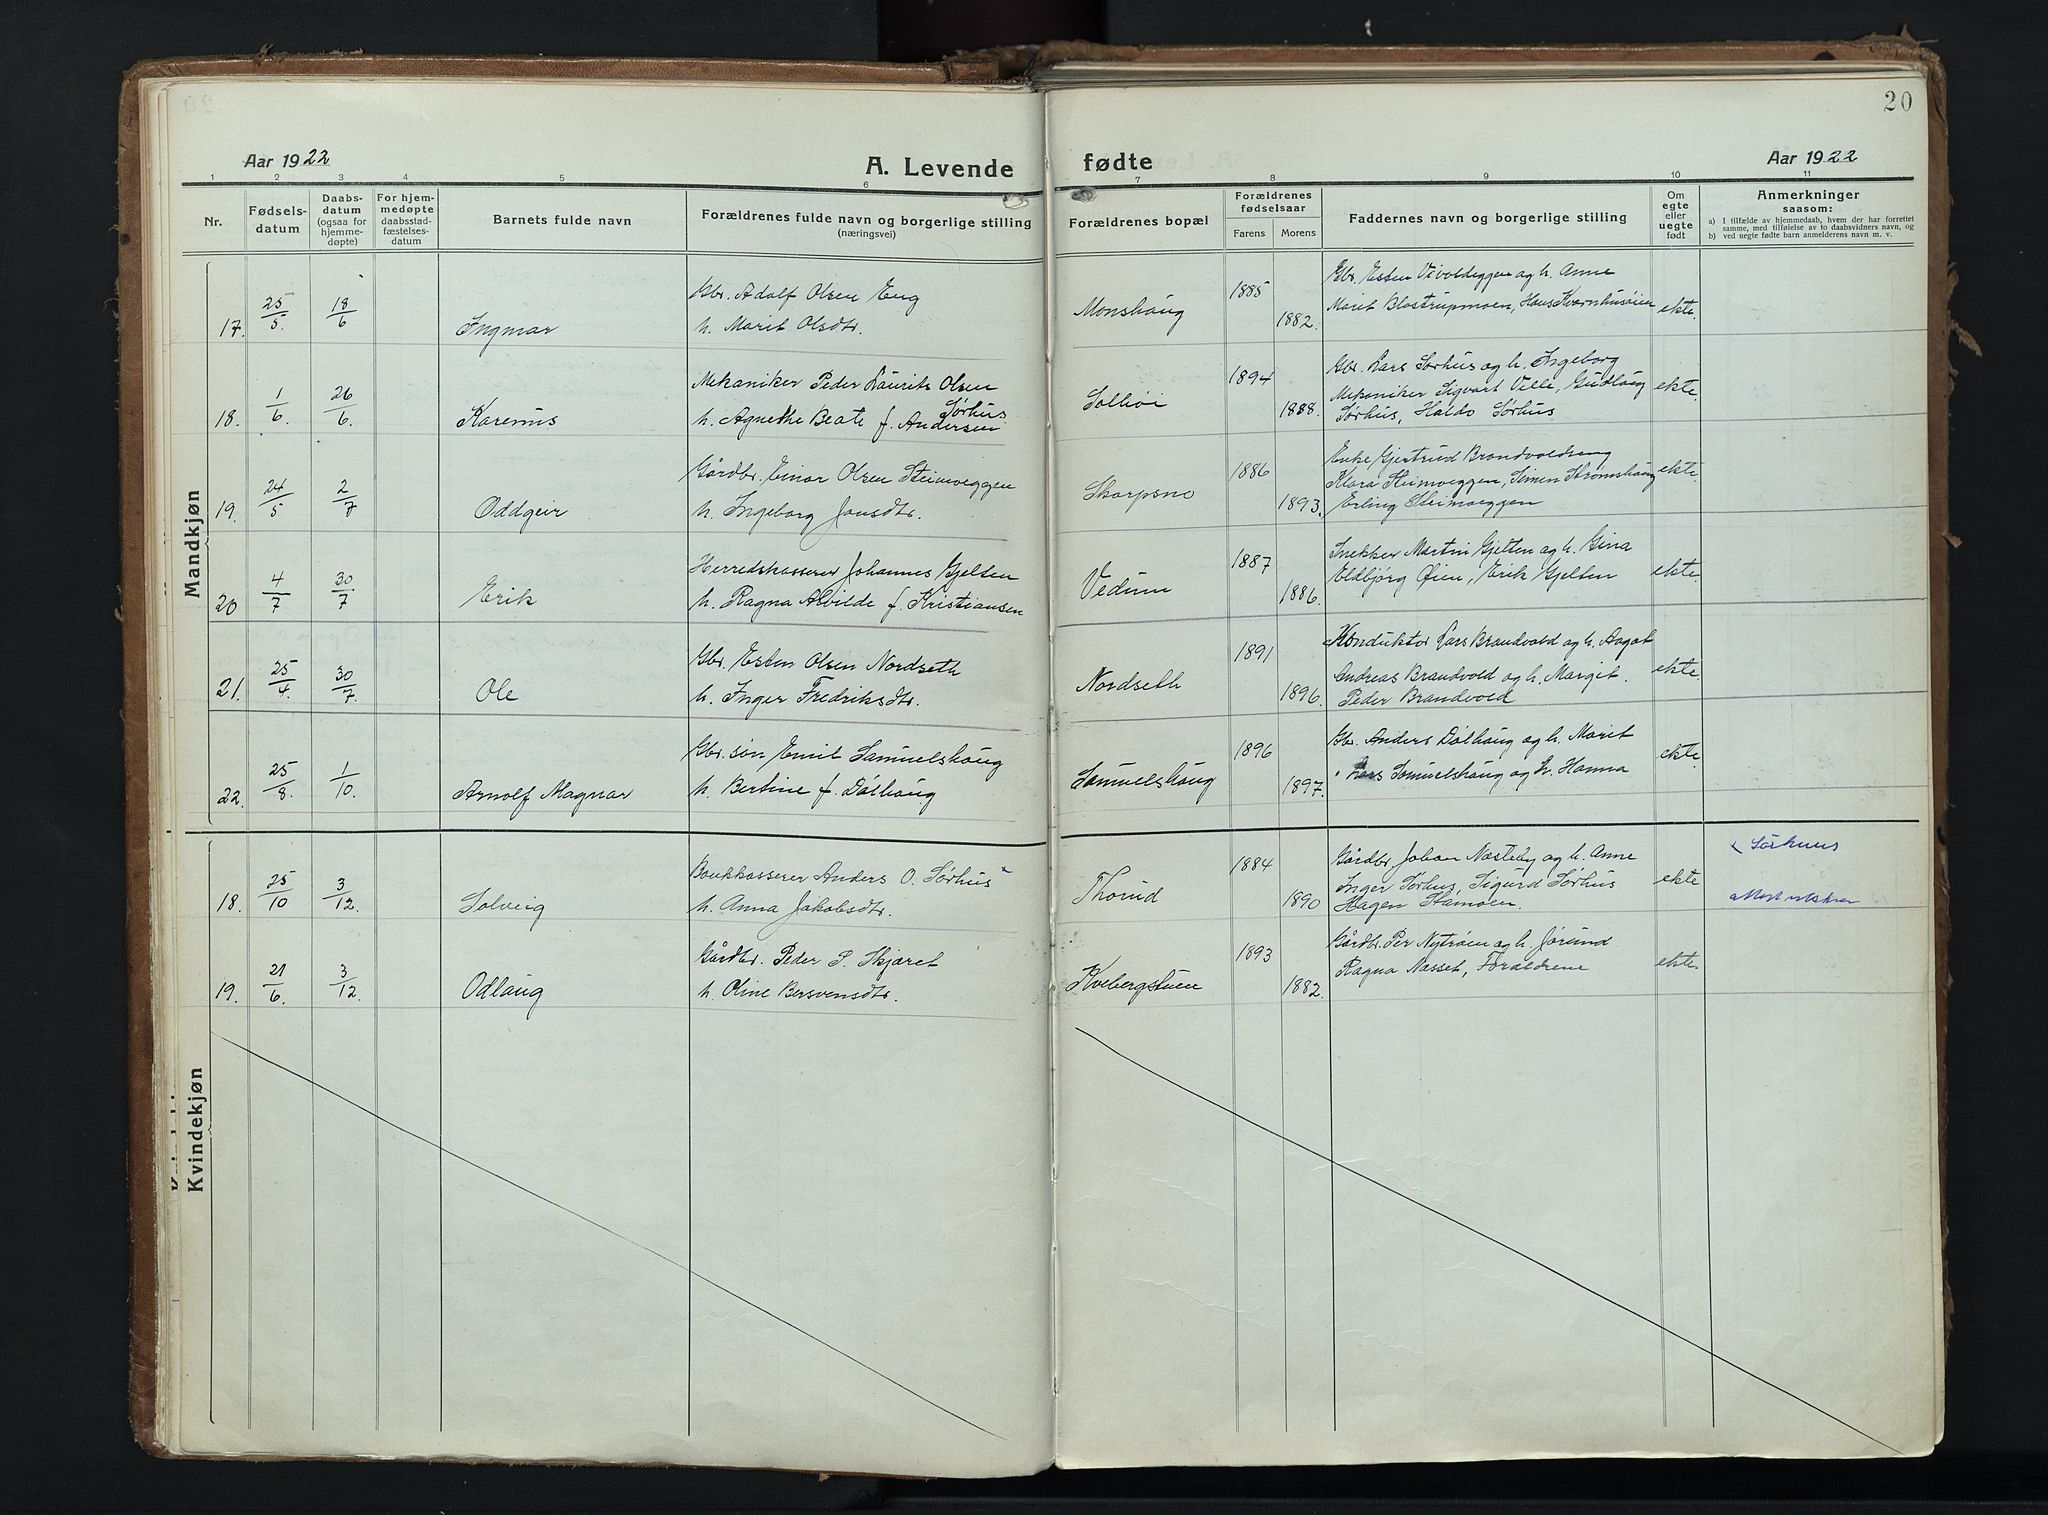 20
Aar 1922
A. Levende fødte
Aar 1922
1 2 3 4 5 6 7 8 9 10 11
Nr.
Fødsels-
datum
Daabs-
datum
(ogsaa for
hjemme-
døpte)
For hjem-
medøpte
daabsstad-
fæstelses-
datum
Barnets fulde navn
Forældrenes fulde navn og borgerlige stilling
(næringsvei)
Forældrenes bopæl
Forældrenes
fødselsaar
Farens Morens
Faddernes navn og borgerlige stilling
Om
egte
eller
uegte
født
Anmerkninger
saasom:
a) I tilfælde av hjemmedaab, hvem der har forrettet
samme, med tilføielse av to daabsvidners navn, og
b) ved uegte fødte barn anmelderens navn m. v.
Mandkjøn
17. 25/5. 18/6 Ingmar
Gbr. Adolf Olsen Eng
h. Marit Olsdtr.
Monshaug 1885 1882.
Gbr. Esten Vivoldeggen og h. Anne
Marit Blostrupmoen, Hans Kvernhusøien
ekte.
18. 1/6. 26/6. Karenus
Mekaniker Peder Laurits Olsen
Sørhus
h. Agnethe Beate f. Andersen
Solliøi 1894 1888.
Gbr. Lars Sørhus og h. Ingeborg
Mekaniker Sigvart Velle, Gudlaug
Sørhus, Haldo Sørhus
ekte.
19. 24/5 2/7 Oddgeir
Gårdbr. Einar Olsen Steimoeggen
h. Ingeborg Jonsdtr.
Skorpsno 1886 1893.
Enke Gjertrud Brandvoldseng
Klara Steimoeggen, Simen Strømshaug
Erling Steimoeggen
ekte.
20 4/7 30/7 Erik
Herredskasserer Johannes Gjelten
h. Ragna Alvilde f. Kristiansen
Vedum 1887 1886.
Snekker Martin Gjelten og h. Gina
Eldbjørg Øien, Erik Gjelten
ekte.
21. 25/4. 30/7. Ole
Gbr. Esten Olsen Nordseth
h. Inger Fredriksdtr.
Nordseth 1891 1896.
Konduktør Lars Brandvold og h. Aagot
Andreas Brandvold og h. Margit.
Peder Brandvold
ekte.
22. 25/8. 1/10. Arnolf Magnar
Gbr. søn Emil Samuelshaug
h. Bertine f. Dølhaug
Samuelshaug 1896 1897.
Gbr. Anders Dølhaug og h. Marit
" Lars Samuelshaug og h. Hanna
ekte.
Kvindekjøn
18. 25/10 3/12. Solveig
Bankkasserer Anders O. Sørhus ×
h. Anna Jakobsdtr.
Thorud 1884 1890
Gårdbr. Johan Næsteby og h. Anne
Inger Sørhus, Sigurd Sørhus
Hagen Stamoen.
ekte
× Sørhuus
19. 21/6. 3/12. Odlaug
Gårdbr. Peder P. Skjæret
h. Oline Bersvensdtr.
Kvebergstuen 1893 1882.
Gårdbr. Per Nytrøen og h. Jørund
Ragna Næsset, Forældrene
ekte.